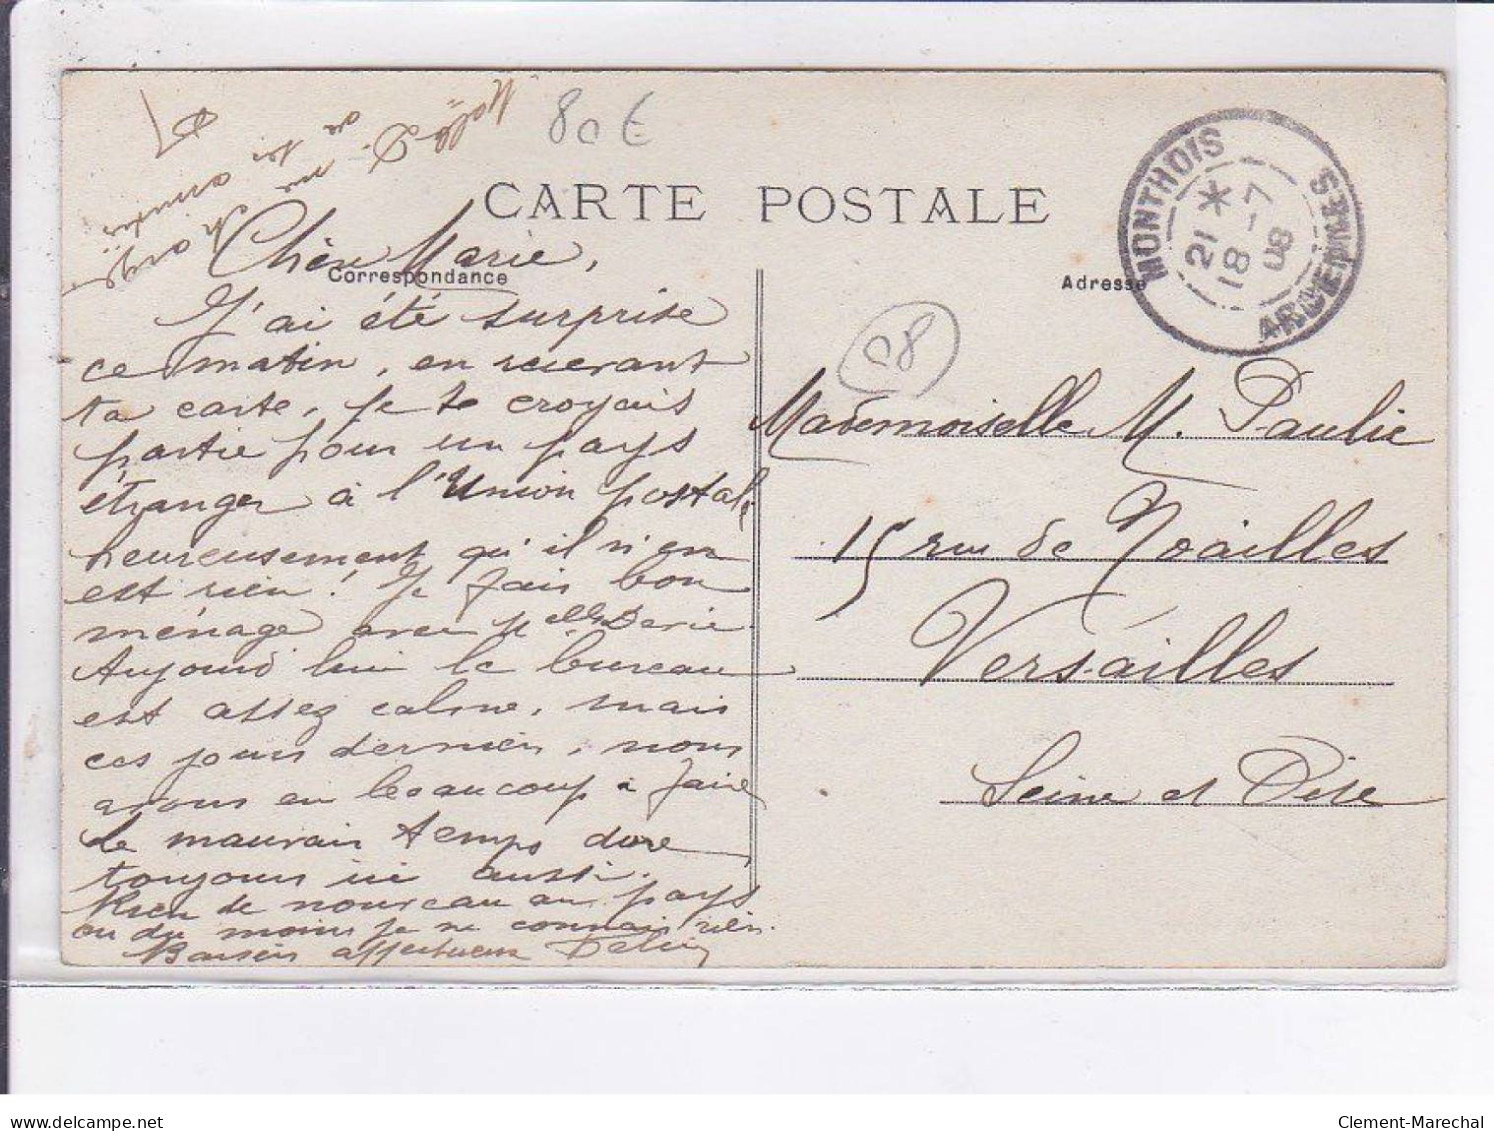 80€
CARTE POSTALE
MONTHOIS
21 *
18 -7
08
ARDENNES
Correspondance
Adresse
08
Chère Marie,
J'ai été surprise
ce matin, en recevant
ta carte, je te croyais
partie pour un pays
étranger à l'Union postale
heureusement qu'il n'en
est rien! Je fais bon
ménage avec Melle Derie
Aujourd'hui le bureau
est assez calme, mais
ces jours derniers, nous
avons eu beaucoup à faire
Le mauvais temps dure
toujours ici aussi.
Rien de nouveau au pays
ou du moins je ne connais rien.
Baisers affectueux
Mademoiselle M. Paulic
15 rue de Noailles
Versailles
Seine et Oise
delcampe.net
Clement-Marechal